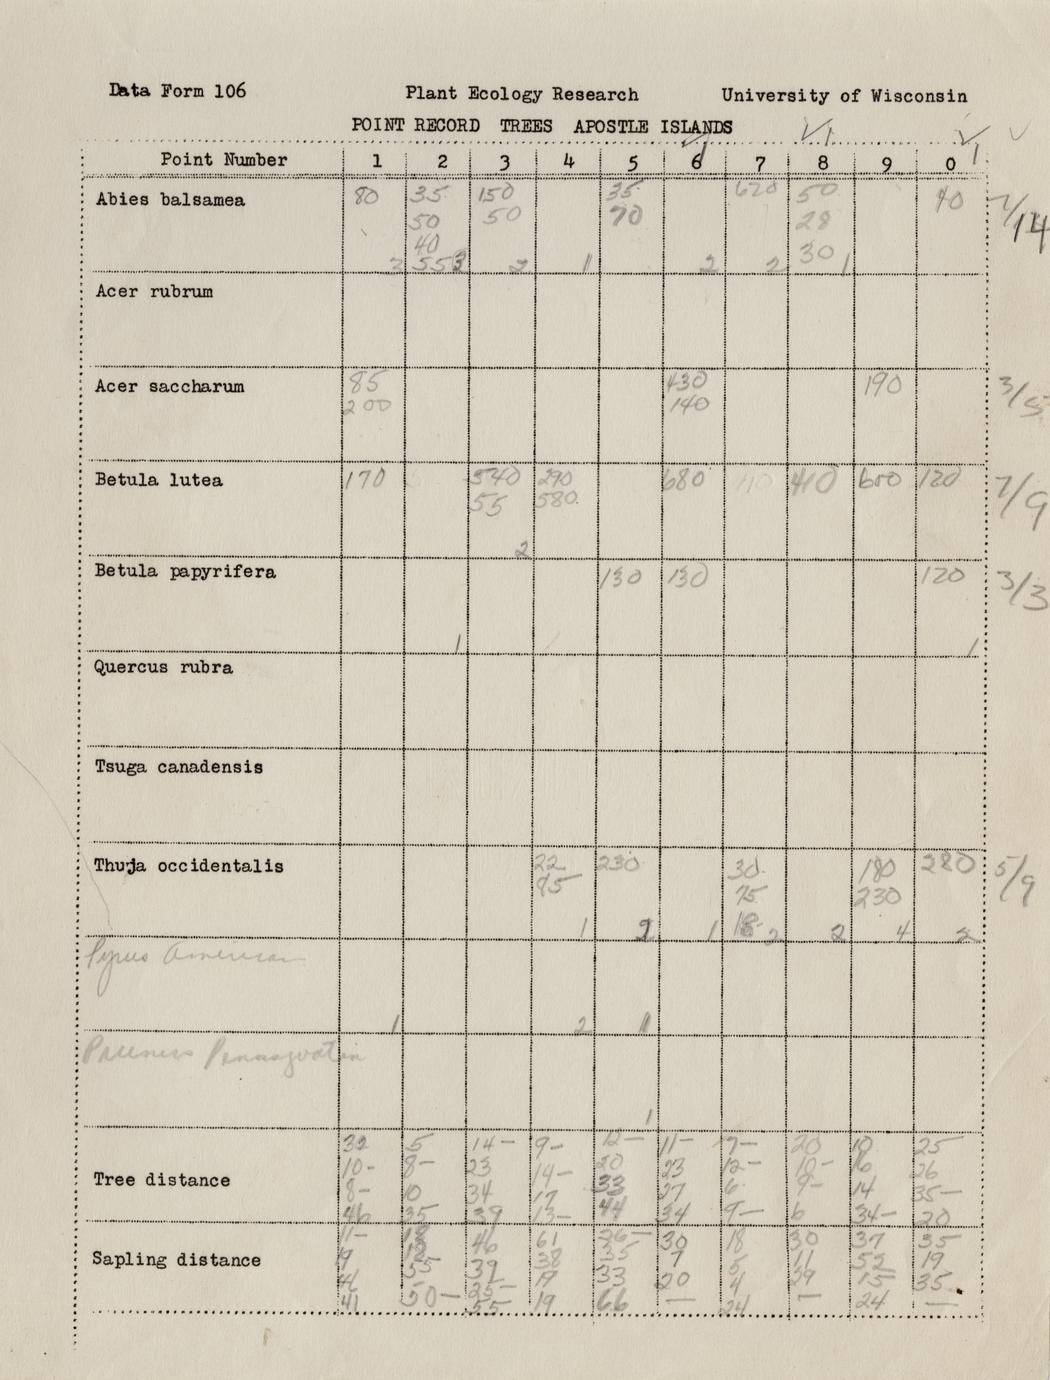 Data Form 106 Plant Ecology Research University of Wisconsin
POINT RECORD TREES APOSTLE ISLANDS
Point Number 1 2 3 4 5 6 7 8 9 0
Abies balsamea 80 35 150 35 620 50 40 7/14
50 50 70 28
40 30
2 55 3 2 1 2 2 1
Acer rubrum
Acer saccharum 85 430 190 3/5
200 140
Betula lutea 170 540 290 680 410 600 120 7/9
55 580
2
Betula papyrifera 130 130 120 3/3
1 1
Quercus rubra
Tsuga canadensis
Thuja occidentalis 22 230 30 180 280 5/9
75 230
1 2 1 18 2 2 4 2
Pyrus American
1 2 1
1
32 5 14- 9- 12- 11- 7- 20 10 25
10- 8- 23 14- 20 23 12- 10- 6 26
Tree distance 8- 10 34 17 33 27 6 9- 14 35-
46 35 39 13- 44 34 9- 6 34- 20
11- 18 46 61 26- 30 18 30 37 35
Sapling distance 19 38 35 7 5 11 52 19
39 19 33 20 4 29 15 35
41 50- 19 66 — 24 — 24 —